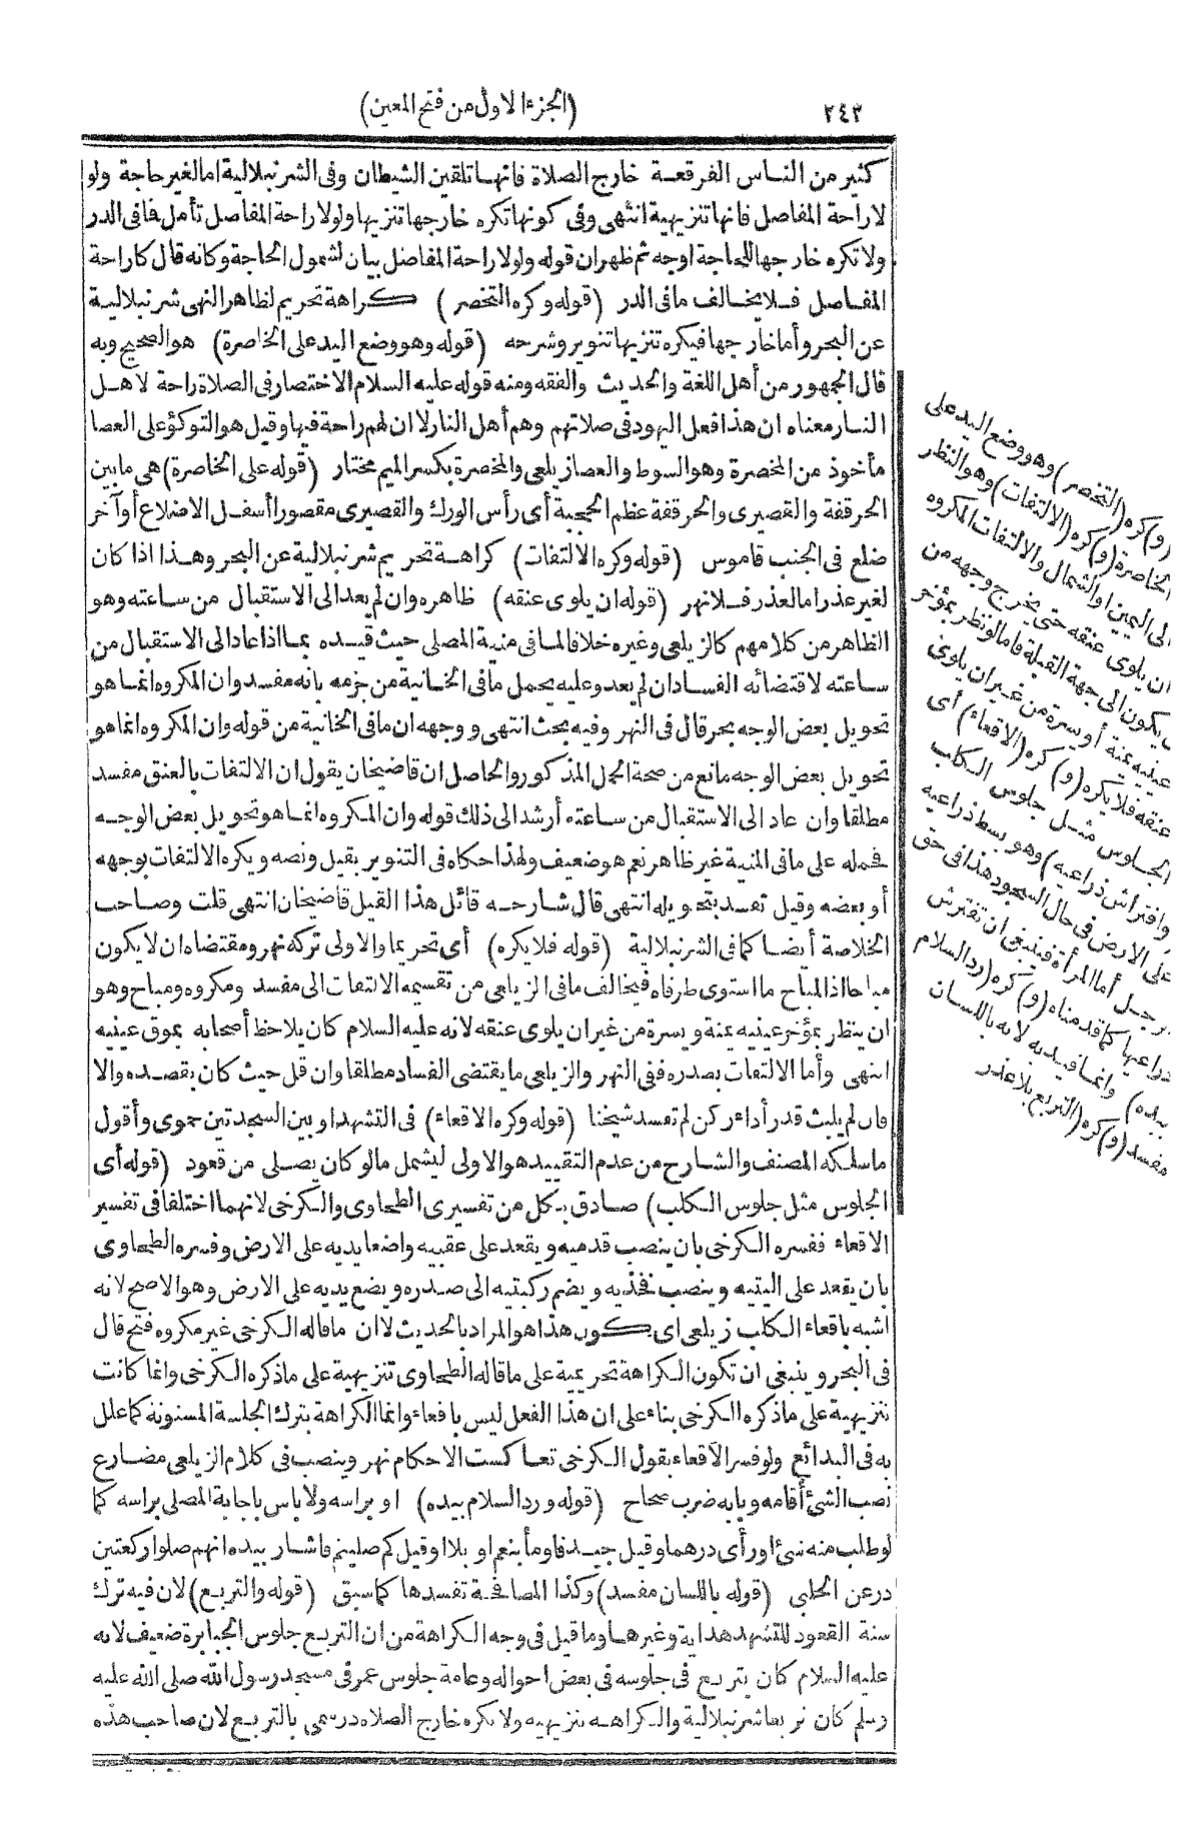 ٢٤٣
(الجزء الاول من فتح المعين)
كثير من الناس الفرقعة خارج الصلاة فانها تلقين الشيطان وفى الشرنبلالية اما لغير حاجة ولو
لاراحة المفاصل فانها تنزيهية انتهى وفى كونها تكره خارجها تنزيها ولو لاراحة المفاصل تأمل فما فى الدر
ولا تكره خارجها للحاجة اوجه ثم ظهر ان قوله ولو لاراحة المفاصل بيان لشمول الحاجة وكانه قال كاراحة
المفاصل فلا يخالف ما فى الدر (قوله وكره التخصر) كراهة تحريم لظاهر النهى شرنبلالية
عن البحر وأما خارجها فيكره تنزيها تنوير وشرحه (قوله وهو وضع اليد على الخاصرة) هو الصحيح وبه
قال الجمهور من أهل اللغة والحديث والفقه ومنه قوله عليه السلام الاختصار فى الصلاة راحة لاهل
النار معناه ان هذا فعل اليهود فى صلاتهم وهم أهل النار لا ان لهم راحة فيها وقيل هو التوكؤ على العصا
مأخوذ من المخصرة وهو السوط والعصا زيلعى والمخصرة بكسر الميم مختار (قوله على الخاصرة) هى ما بين
الحرقفة والقصيرى والحرقفة عظم الحجبة أى رأس الورك والقصيرى مقصورا أسفل الاضلاع أو آخر
ضلع فى الجنب قاموس (قوله وكره الالتفات) كراهة تحريم شرنبلالية عن البحر وهذا اذا كان
لغير عذر اما لعذر فلا نهر (قوله ان يلوى عنقه) ظاهره وان لم يعد الى الاستقبال من ساعته وهو
الظاهر من كلامهم كالزيلعى وغيره خلافا لما فى منية المصلى حيث قيده بما اذا عاد الى الاستقبال من
ساعته لاقتضائه الفساد ان لم يعد وعليه يحمل ما فى الخانية من جزمه بانه مفسد وان المكروه انما هو
تحويل بعض الوجه بحر قال فى النهر وفيه بحث انتهى ووجهه ان ما فى الخانية من قوله وان المكروه انما هو
تحويل بعض الوجه مانع من صحة الحمل المذكور والحاصل ان قاضيخان يقول ان الالتفات بالعنق مفسد
مطلقا وان عاد الى الاستقبال من ساعته أرشد الى ذلك قوله وان المكروه انما هو تحويل بعض الوجه
فحمله على ما فى المنية غير ظاهر نعم هو ضعيف ولهذا حكاه فى التنوير بقيل ونصه ويكره الالتفات بوجهه
أو بعضه وقيل تفسد بتحويله انتهى قال شارحه قائل هذا القيل قاضيخان انتهى قلت وصاحب
الخلاصة أيضا كما فى الشرنبلالية (قوله فلا يكره) أى تحريما والاولى تركه نهر ومقتضاه ان لا يكون
مباحا اذ المباح ما استوى طرفاه فيخالف ما فى الزيلعى من تقسيمه الالتفات الى مفسد ومكروه ومباح وهو
ان ينظر بمؤخر عينيه يمنة ويسرة من غير ان يلوى عنقه لانه عليه السلام كان يلاحظ أصحابه بموق عينيه
انتهى وأما الالتفات بصدره ففى النهر والزيلعى ما يقتضى الفساد مطلقا وان قل حيث كان بقصده والا
فان لم يلبث قدر أداء ركن لم تفسد شيخنا (قوله وكره الاقعاء) فى التشهد او بين السجدتين حموى وأقول
ما سلكه المصنف والشارح من عدم التقييد هو الاولى ليشمل ما لو كان يصلى من قعود (قوله أى
الجلوس مثل جلوس الكلب) صادق بكل من تفسيرى الطحاوى والكرخى لانهما اختلفا فى تفسير
الاقعاء ففسره الكرخى بان ينصب قدميه ويقعد على عقبيه واضعا يديه على الارض وفسره الطحاوى
بان يقعد على اليتيه وينصب فخذيه ويضم ركبتيه الى صدره ويضع يديه على الارض وهو الاصح لانه
اشبه باقعاء الكلب زيلعى اى يكون هذا هو المراد بالحديث لا ان ما قاله الكرخى غير مكروه فتح قال
فى البحر وينبغى ان تكون الكراهة تحريمية على ما قاله الطحاوى تنزيهية على ما ذكره الكرخى وانما كانت
تنزيهية على ما ذكره الكرخى بناء على ان هذا الفعل ليس باقعاء وانما الكراهة بترك الجلسة المسنونة كما علل
به فى البدائع ولو فسر الاقعاء بقول الكرخى تعاكست الاحكام نهر وينصب فى كلام الزيلعى مضارع
نصب الشئ أقامه وبابه ضرب صحاح (قوله ورد السلام بيده) او براسه ولا باس باجابة المصلى براسه كما
لو طلب منه شئ او رأى درهما وقيل جيد فاومأ بنعم او بلا او قيل كم صليتم فاشار بيده انهم صلوا ركعتين
در عن الحلبى (قوله باللسان مفسد) وكذا المصافحة تفسدها كما سبق (قوله والتربع) لان فيه ترك
سنة القعود للتشهد هداية وغيرها وما قيل فى وجه الكراهة من ان التربع جلوس الجبابرة ضعيف لانه
عليه السلام كان يتربع فى جلوسه فى بعض احواله وعامة جلوس عمر فى مسجد رسول الله صلى الله عليه
وسلم كان تربعا شرنبلالية والكراهة تنزيهية ولا يكره خارج الصلاة در سمى بالتربع لان صاحب هذه
(و) كره (التخصر) وهو وضع اليد على
الخاصرة (و) كره (الالتفات) وهو النظر
الى اليمين او الشمال والالتفات المكروه
ان يلوى عنقه حتى يخرج وجهه من
يكون الى جهة القبلة فاما لو نظر بمؤخر
عينيه يمنة أو يسرة من غير ان يلوى
عنقه فلا يكره (و) كره (الاقعاء) أى
الجلوس مثل جلوس الكلب
وافتراش ذراعيه) وهو بسط ذراعيه
على الارض فى حال السجود هذا فى حق
رجل أما المرأة فينبغى ان تفترش
ذراعيها كما قدمناه (و) كره (رد السلام
بيده) وانما قيد به لانه باللسان
مفسد (و) كره (التربع بلا عذر